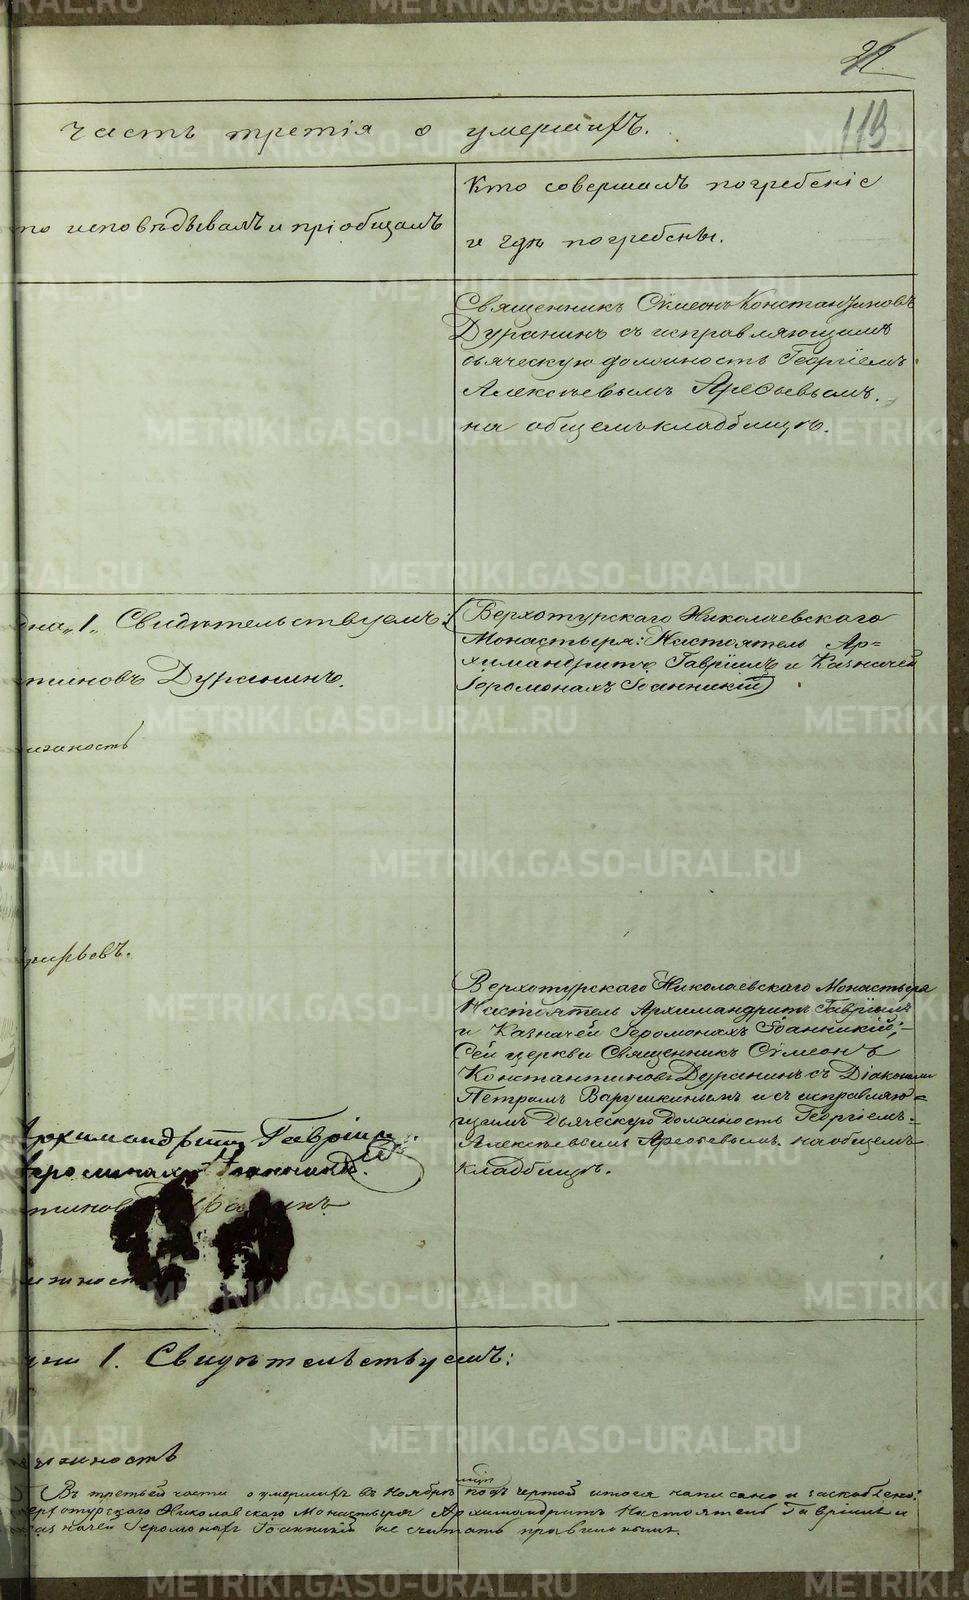 119
часть третія о умершихъ.
то исповѣдывалъ и пріобщалъ
Кто совершалъ погребеніе
и гдѣ погребены.
Священникъ Сѵмеонъ Константиновъ
Дуранинъ съ исправляющимъ
дьяческую должность Георгіемъ
Алексѣевымъ Арефьевымъ.
на общемъ кладбищѣ.
дна „1„ Свидѣтельствуемъ:
тиновъ Дуранинъ.
лжность
(Верхотурскаго Николаевскаго
Монастыря: Настоятель Ар=
химандритъ Гавріилъ и Казначей
Іеромонахъ Іоанникій)
горьевъ.
Верхотурскаго Николаевскаго Монастыря
Настоятель Архимандритъ Гавріилъ
и Казначей Іеромонахъ Іоанникій;
Сей церкви Священникъ Сѵмеонъ
Константиновъ Дуранинъ съ Діакономъ
Петромъ Варушкинымъ и съ исправляю=
щимъ дьяческую должность Георгіемъ
Алексѣевымъ Арефьевымъ. на общемъ
кладбищѣ.
Архимандритъ Гавріилъ.
Іеромонахъ Іоанникій.
тиновъ Дуранинъ
лжность
1. Свидѣтельствуемъ:
лжность
Въ третьей части о умершихъ въ Ноябрѣ мцѣ подъ чертой итога написано и заскоблено:
Верхотурскаго Николаевскаго Монастыря Архимандритъ Настоятель Гавріилъ и
казначей Іеромонахъ Іоанникій не считать правильнымъ.
METRIKI.GASO-URAL.RU